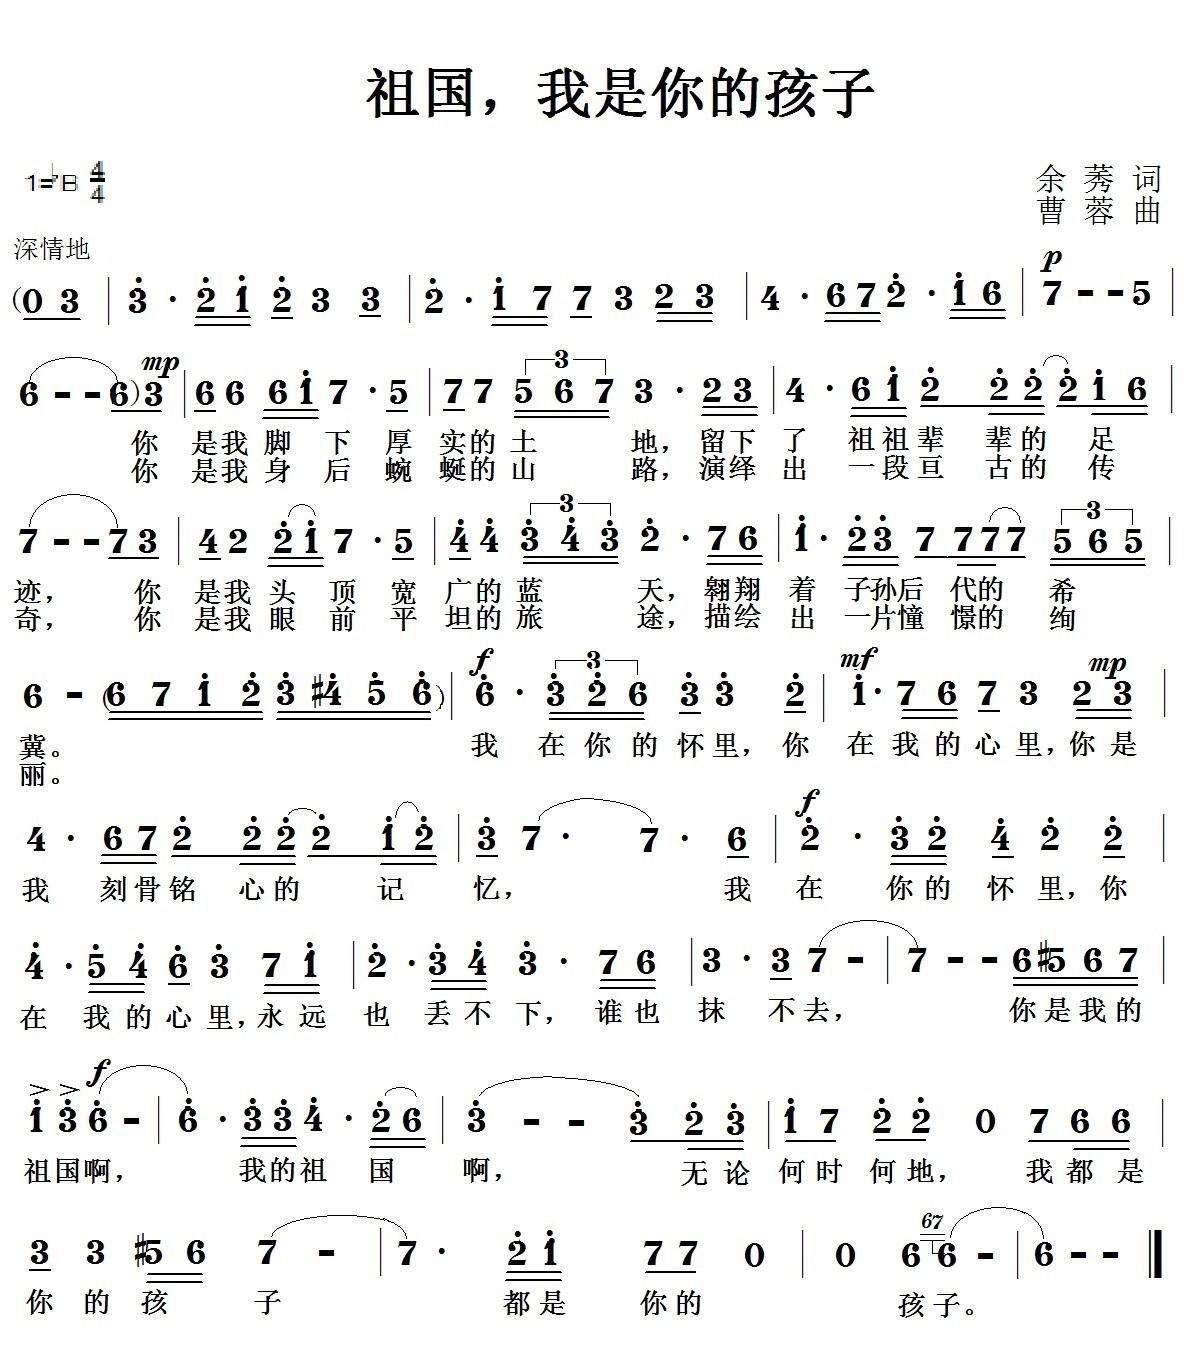 祖国，我是你的孩子
1=♭B 4/4
余莠词
曹蓉曲
深情地
p
(0 3 | 3̇ · 2̇ 1̇ 2̇ 3 3 | 2̇ · 1̇ 7 7 3 2 3 | 4 · 6 7 2̇ · 1̇ 6 | 7 - - 5 |
mp 3
6 - - 6) 3 | 6 6 6 1̇ 7 · 5 | 7 7 5 6 7 3 · 2 3 | 4 · 6 1̇ 2̇ 2̇ 2̇ 2̇ 1̇ 6 |
你 是我 脚 下 厚 实的 土 地，留下 了 祖祖辈 辈的 足
你 是我 身 后 蜿 蜒的 山 路，演绎 出 一段亘 古的 传
3 3
7 - - 7 3 | 4 2 2̇ 1̇ 7 · 5̇ | 4̇ 4̇ 3̇ 4̇ 3̇ 2̇ · 7 6 | 1̇ · 2̇ 3̇ 7 7 7 7 5 6 5 |
迹， 你 是我 头 顶 宽 广的 蓝 天，翱翔 着 子孙后 代的 希
奇， 你 是我 眼 前 平 坦的 旅 途，描绘 出 一片憧 憬的 绚
f 3 mf mp
6 - (6 7 1̇ 2̇ 3̇ #4̇ 5̇ 6̇) | 6̇ · 3̇ 2̇ 6 3̇ 3̇ 2̇ | 1̇ · 7 6 7 3 2 3 |
冀。 我 在 你 的 怀 里，你 在 我 的 心 里，你 是
丽。
f
4 · 6 7 2̇ 2̇ 2̇ 2̇ 1̇ 2̇ | 3̇ 7 · 7 · 6 | 2̇ · 3̇ 2̇ 4̇ 2̇ 2̇ |
我 刻骨铭 心的 记 忆， 我 在 你的 怀 里，你
4̇ · 5̇ 4̇ 6̇ 3̇ 7 1̇ | 2̇ · 3̇ 4̇ 3̇ · 7 6 | 3 · 3 7 - | 7 - - 6 #5 6 7 |
在 我 的 心 里，永 远 也 丢 不 下， 谁 也 抹 不 去， 你 是 我 的
> > f
1̇ 3̇ 6̇ - | 6̇ · 3̇ 3̇ 4̇ · 2̇ 6 | 3̇ - - 3̇ 2̇ 3̇ | 1̇ 7 2̇ 2̇ 0 7 6 6 |
祖国啊， 我的祖 国 啊， 无论 何时 何地， 我都是
67
3 3 #5 6 7 - | 7 · 2̇ 1̇ 7 7 0 | 0 6 6 - | 6 - - ‖
你 的 孩 子 都是 你的 孩子。